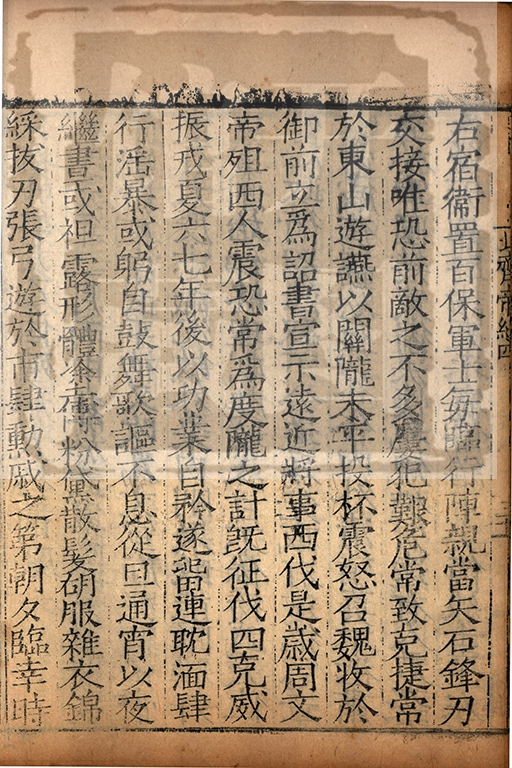 北齊帝紀四
右宿衞置百保軍士每臨行陣親當矢石鋒刃
交接唯恐前敵之不多屢犯艱危常致克捷常
於東山遊讌以關隴未平投杯震怒召魏收於
御前立爲詔書宣示遠近將事西伐是歲周文
帝殂西人震恐常爲度隴之計旣征伐四克威
振戎夏六七年後以功業自矜遂留連耽湎肆
行淫暴或躬自鼓舞歌謳不息從旦通宵以夜
繼晝或袒露形體塗傅粉黛散髮胡服雜衣錦
綵拔刃張弓遊於市肆勳戚之第朝夕臨幸時